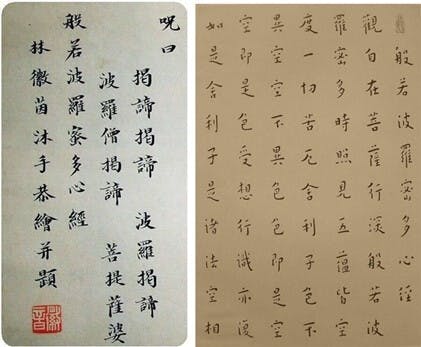 呪曰
揭諦揭諦 波羅揭諦
波羅僧揭諦 菩提薩婆
般若波羅蜜多心經
林徽茵沐手恭繪并題
般若波羅密多心經
觀自在菩薩行深般若波
羅密多時照見五蘊皆空
度一切苦厄舍利子色不
異空空不異色色即是空
空即是色受想行識亦復
如是舍利子是諸法空相